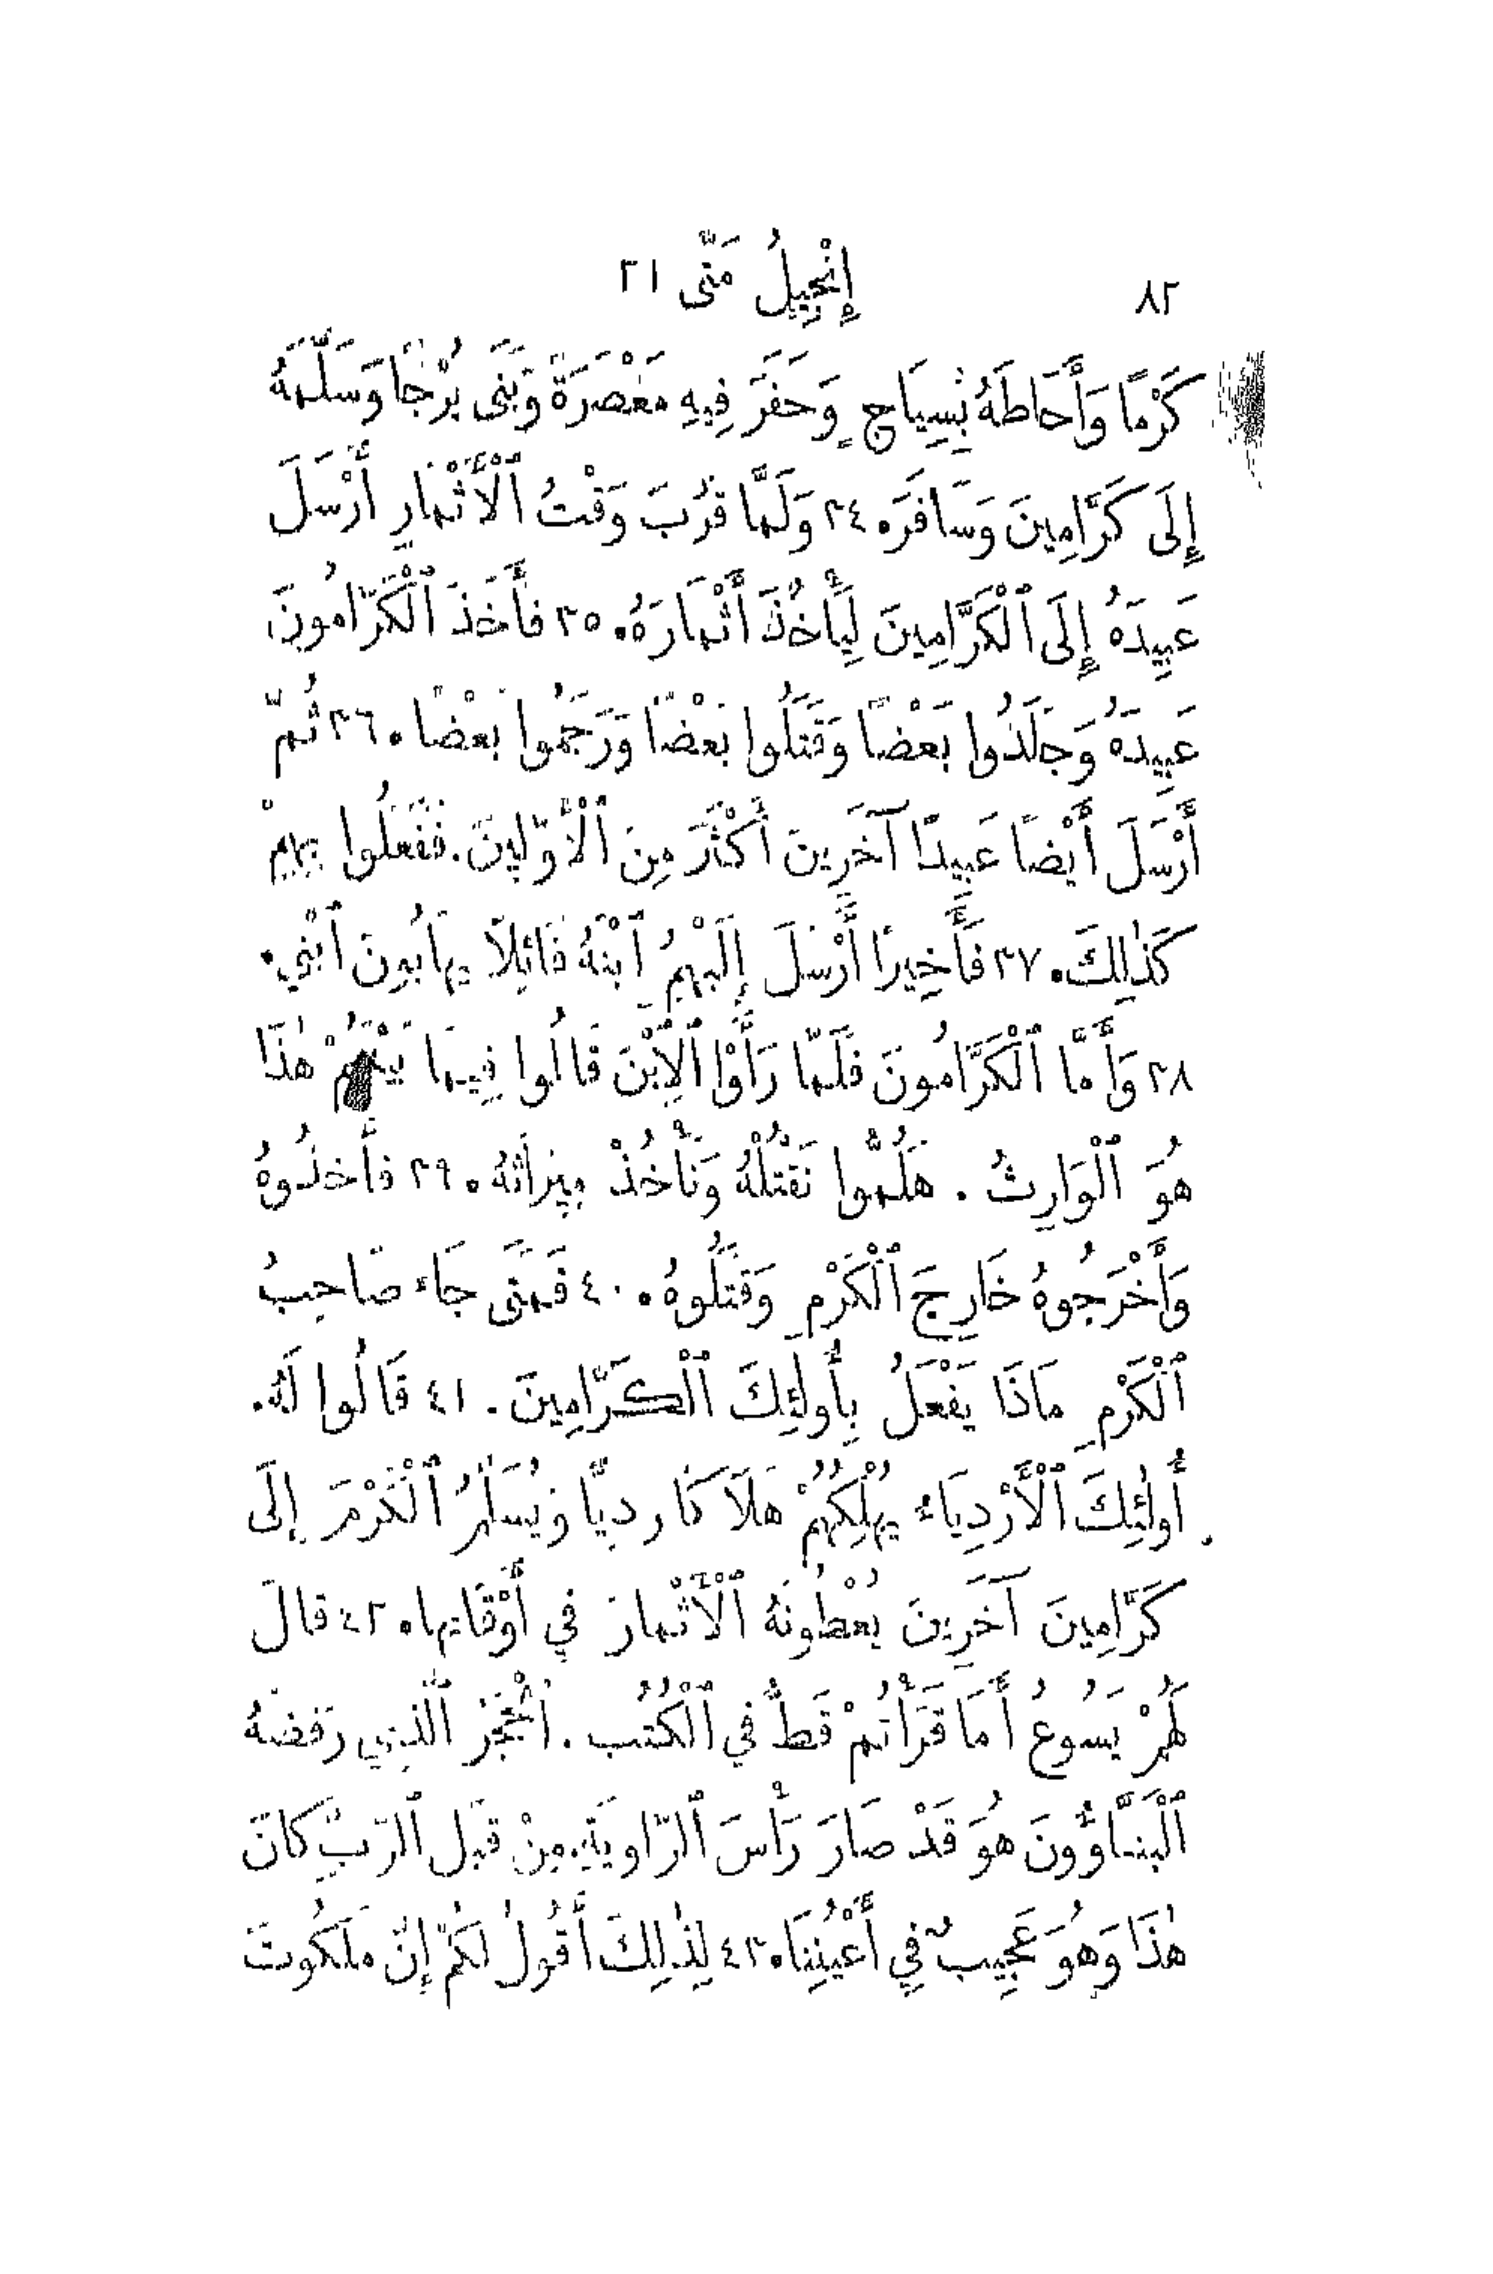 ٨٢ إِنْجِيلُ مَتَّى ٢١
كَرْمًا وَأَحَاطَهُ بِسِيَاجٍ وَحَفَرَ فِيهِ مَعْصَرَةً وَبَنَى بُرْجًا وَسَلَّمَهُ
إِلَى كَرَّامِينَ وَسَافَرَ. ٣٤ وَلَمَّا قَرُبَ وَقْتُ ٱلْأَثْمَارِ أَرْسَلَ
عَبِيدَهُ إِلَى ٱلْكَرَّامِينَ لِيَأْخُذَ أَثْمَارَهُ. ٣٥ فَأَخَذَ ٱلْكَرَّامُونَ
عَبِيدَهُ وَجَلَدُوا بَعْضًا وَقَتَلُوا بَعْضًا وَرَجَمُوا بَعْضًا. ٣٦ ثُمَّ
أَرْسَلَ أَيْضًا عَبِيدًا آخَرِينَ أَكْثَرَ مِنَ ٱلْأَوَّلِينَ. فَفَعَلُوا بِهِمْ
كَذٰلِكَ. ٣٧ فَأَخِيرًا أَرْسَلَ إِلَيْهِمُ ٱبْنَهُ قَائِلًا يَهَابُونَ ٱبْنِي.
٣٨ وَأَمَّا ٱلْكَرَّامُونَ فَلَمَّا رَأَوْا ٱلِٱبْنَ قَالُوا فِيمَا بَيْنَهُمْ هٰذَا
هُوَ ٱلْوَارِثُ. هَلُمُّوا نَقْتُلْهُ وَنَأْخُذْ مِيرَاثَهُ. ٣٩ فَأَخَذُوهُ
وَأَخْرَجُوهُ خَارِجَ ٱلْكَرْمِ وَقَتَلُوهُ. ٤٠ فَمَتَى جَاءَ صَاحِبُ
ٱلْكَرْمِ مَاذَا يَفْعَلُ بِأُولٰئِكَ ٱلْكَرَّامِينَ. ٤١ قَالُوا لَهُ.
أُولٰئِكَ ٱلْأَرْدِيَاءُ يُهْلِكُهُمْ هَلَاكًا رَدِيًّا وَيُسَلِّمُ ٱلْكَرْمَ إِلَى
كَرَّامِينَ آخَرِينَ يُعْطُونَهُ ٱلْأَثْمَارَ فِي أَوْقَاتِهَا. ٤٢ قَالَ
لَهُمْ يَسُوعُ أَمَا قَرَأْتُمْ قَطُّ فِي ٱلْكُتُبِ. ٱلْحَجَرُ ٱلَّذِي رَفَضَهُ
ٱلْبَنَّاؤُونَ هُوَ قَدْ صَارَ رَأْسَ ٱلزَّاوِيَةِ. مِنْ قِبَلِ ٱلرَّبِّ كَانَ
هٰذَا وَهُوَ عَجِيبٌ فِي أَعْيُنِنَا. ٤٣ لِذٰلِكَ أَقُولُ لَكُمْ إِنَّ مَلَكُوتَ